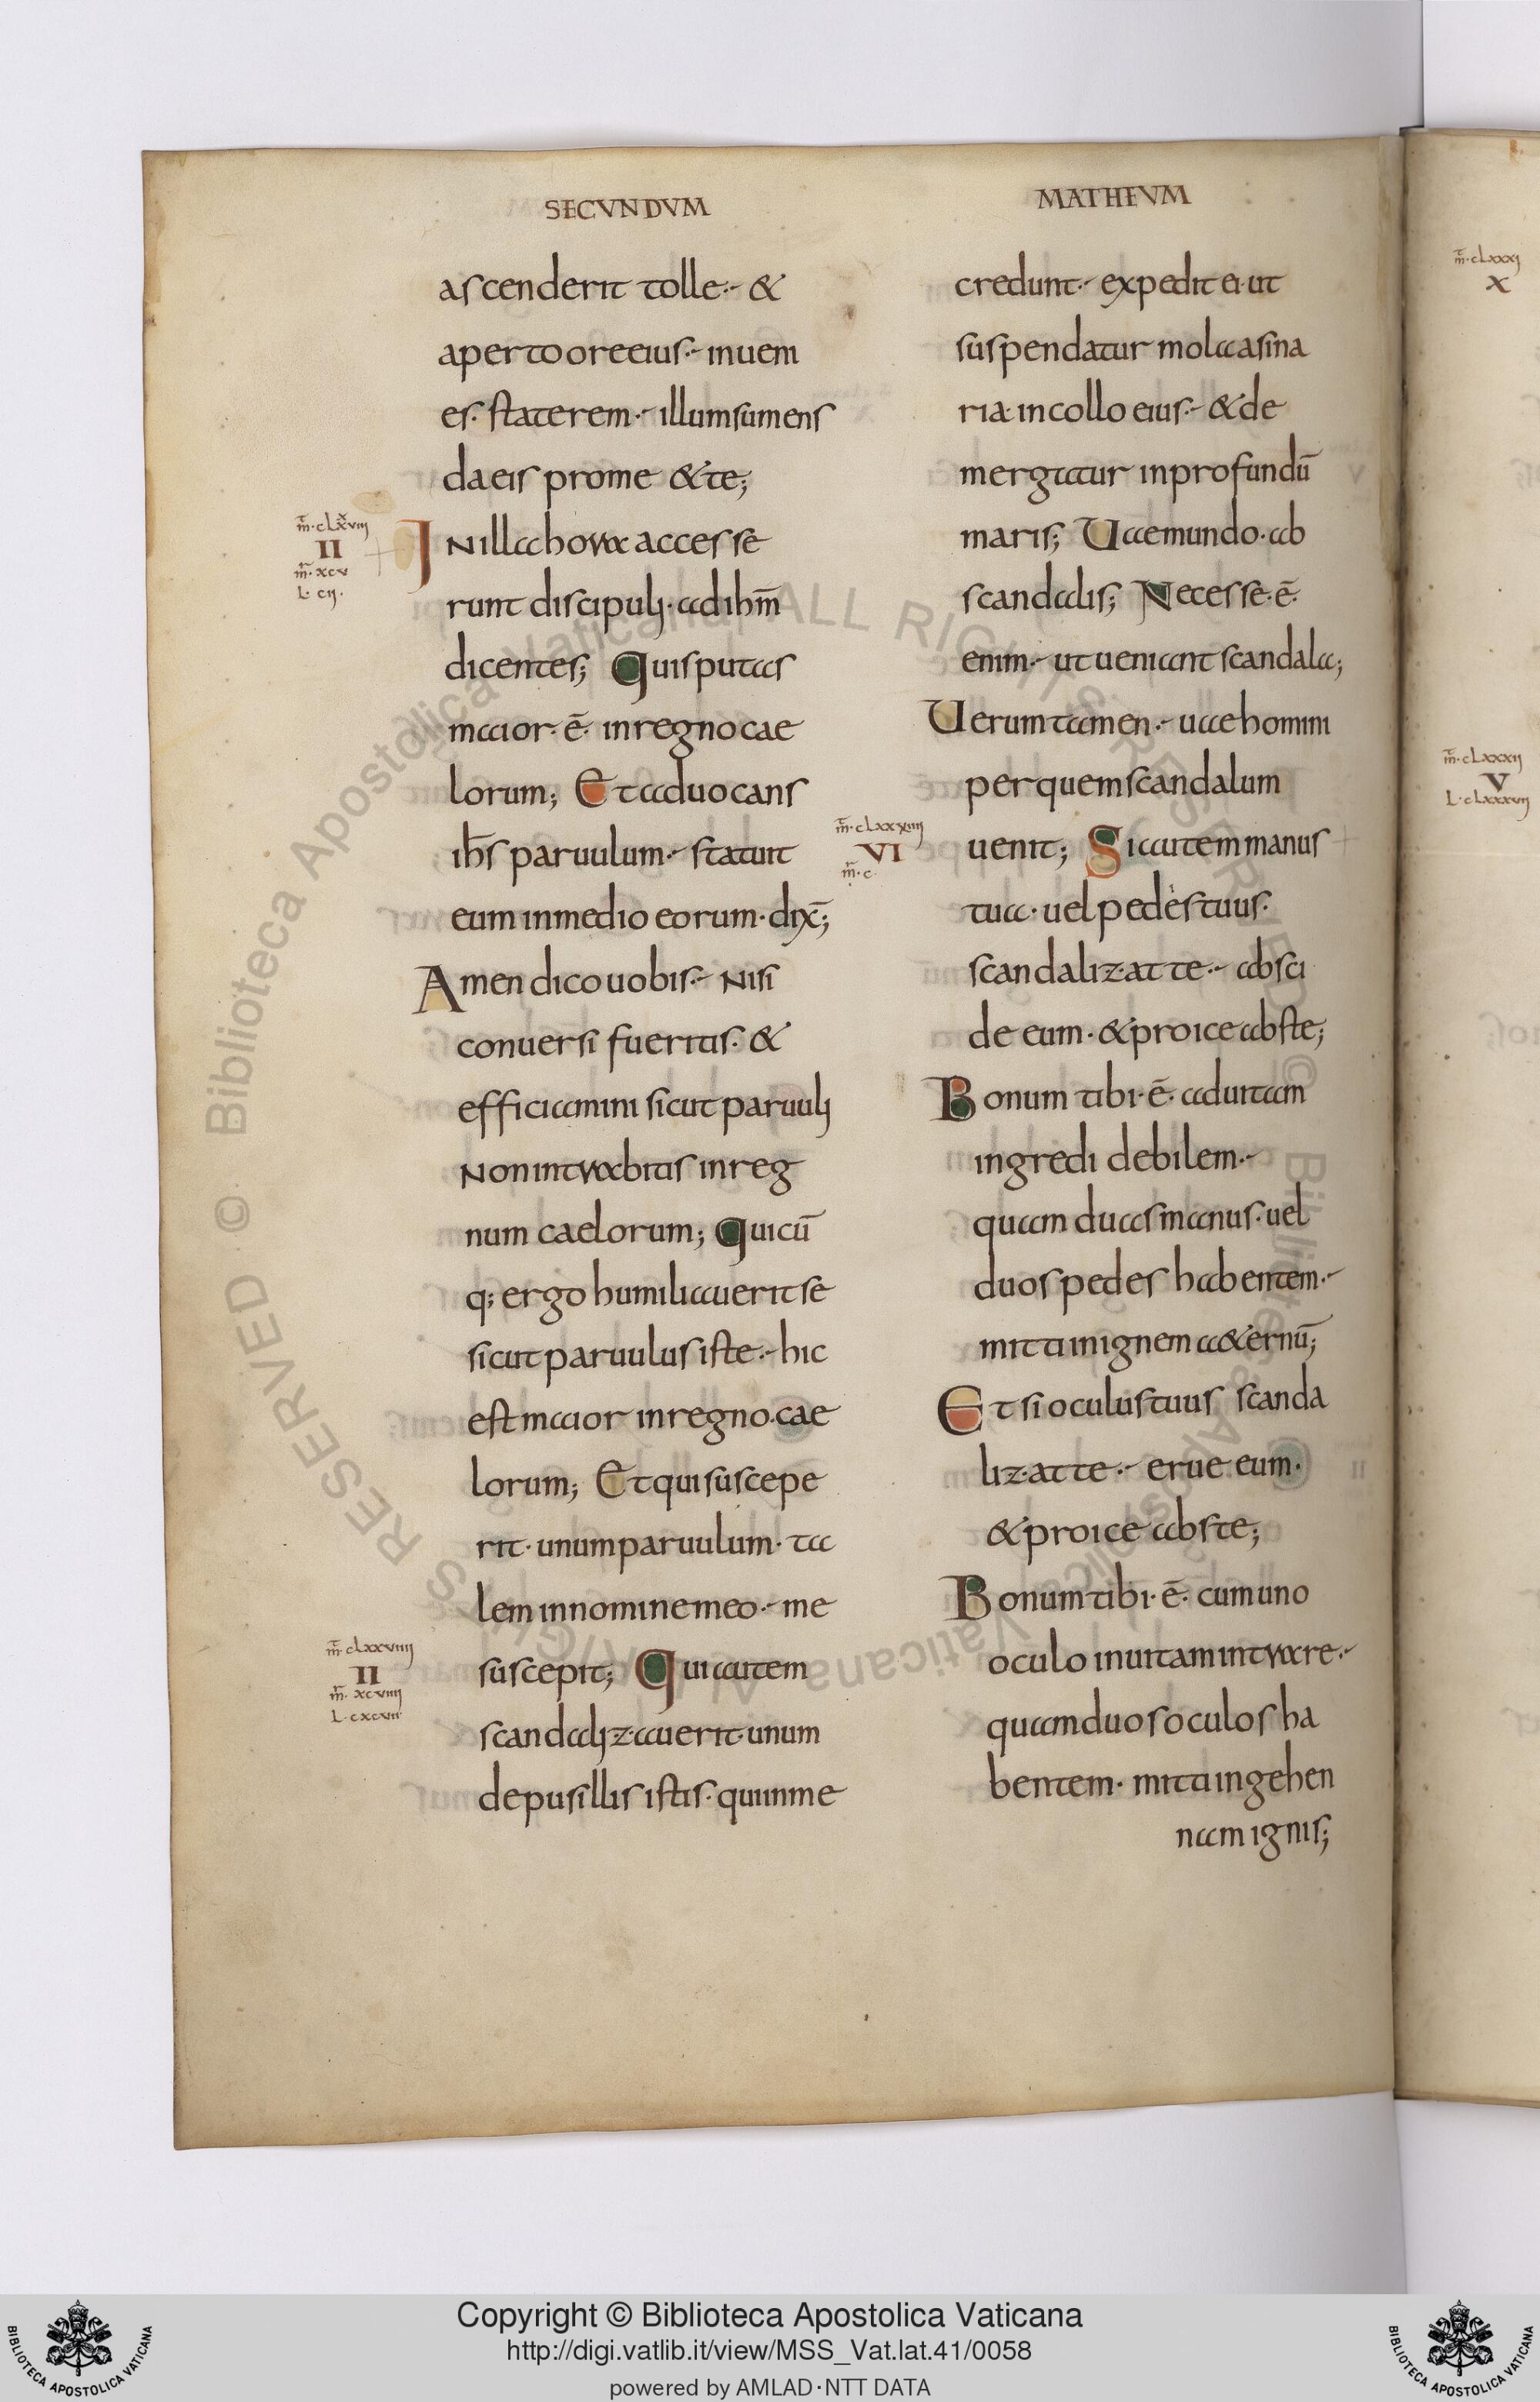 SECVNDVM
ascenderit tolle·- &
aperto ore eius·- inueni
es· staterem·- illum sumens
da eis pro me & te;
m̅·clxxviii
II
m̅·xcv
L·cii·
IN illa hora accesse
runt discipuli· ad ihm̅
dicentes; Quis putas
maior· ē· in regno cae
lorum; Et aduocans
ihs̅ paruulum·- statuit
eum in medio eorum· dix̅;
Amen dico uobis·- Nisi
conuersi fueritis· &
efficiamini sicut paruuli
Non intrabitis in reg
num caelorum; Quicū
q; ergo humiliauerit se
sicut paruulus iste·- hic
est maior in regno· cae
lorum; Et qui suscepe
rit· unum paruulum· ta
lem in nomine meo·- me
m̅·clxxviiii
II
m̅· xcviiii
L·cxcvii
suscepit; Qui autem
scandalizauerit· unum
de pusillis istis· qui in me
MATHEVM
credunt·- expedit ei· ut
suspendatur mola asina
ria· in collo eius·- & de
mergatur in profundū
maris; Uae mundo· ab
scandalis; Necesse· ē·
enim·- ut ueniant scandala;
Uerumtamen·- uae homini
per quem scandalum
m̅·clxxxiiii
VI
m̅·c·
uenit; Si autem manus
tua· uel pedes tuus·
scandalizat te·- absci
de eum· & proice abs te;
Bonum tibi· ē· ad uitam
ingredi debilem·-
quam duas manus· uel
duos pedes habentem·-
mitti in ignem a&ernū;
Et si oculus tuus scanda
lizat te·- erue eum·
& proice abs te;
Bonum tibi· ē· cum uno
oculo in uitam intrare·-
quam duos oculos ha
bentem· mitti in gehen
nam ignis;
m̅·clxxxi
X
m̅·clxxxii
V
L·clxxxvii
Copyright © Biblioteca Apostolica Vaticana
http://digi.vatlib.it/view/MSS_Vat.lat.41/0058
powered by AMLAD·NTT DATA
BIBLIOTECA APOSTOLICA VATICANA
BIBLIOTECA APOSTOLICA VATICANA